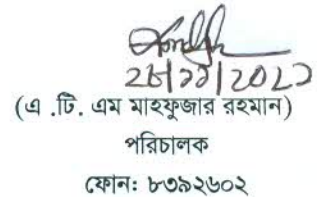 ২৮/১১/২০২১
(এ .টি. এম মাহফুজার রহমান)
পরিচালক
ফোন: ৮৩৯২৬০২